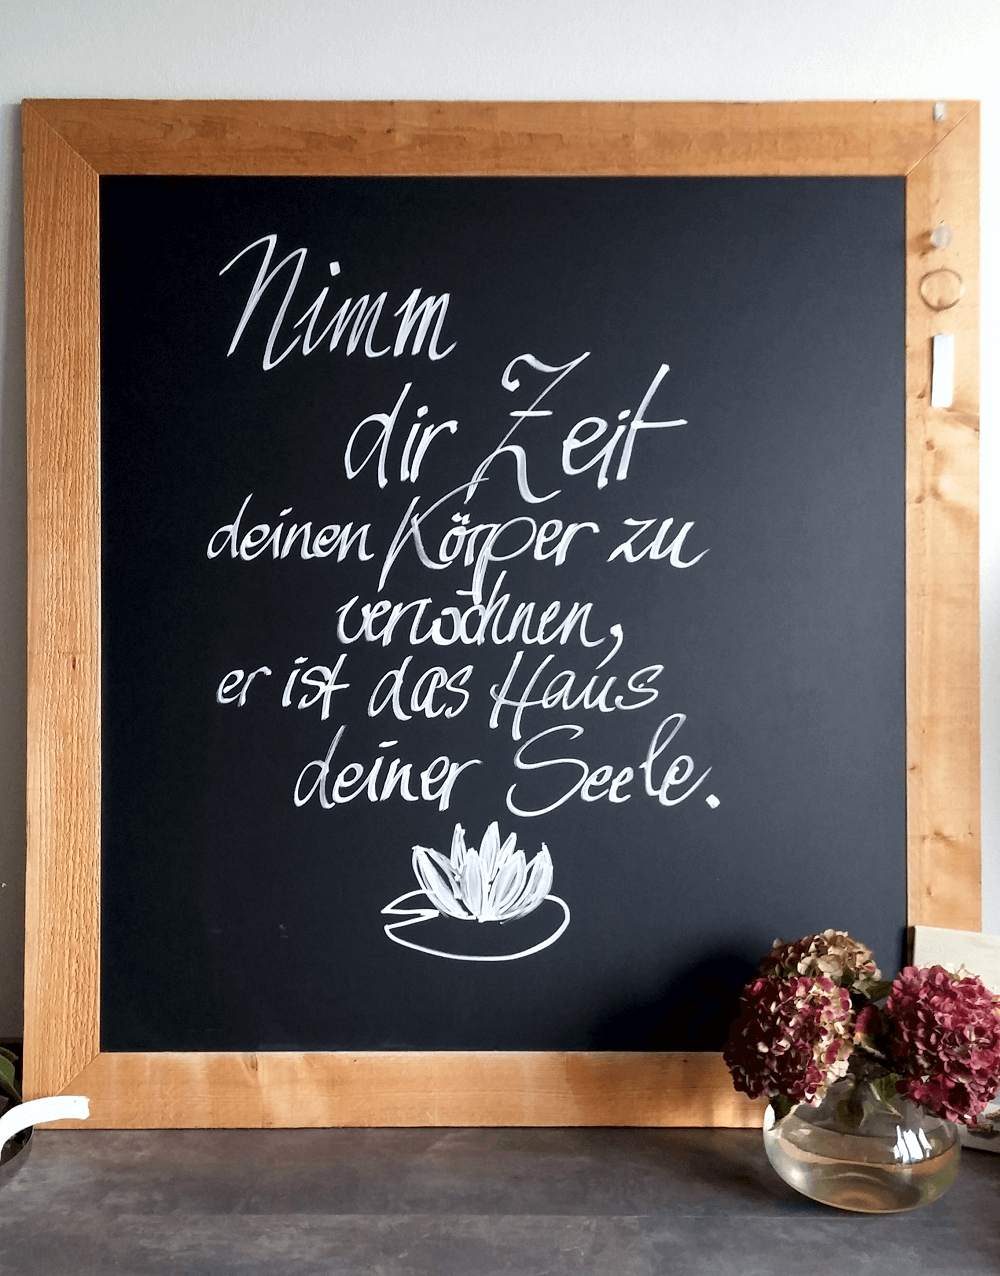 Nimm
dir Zeit
deinen Körper zu
verwöhnen,
er ist das Haus
deiner Seele.